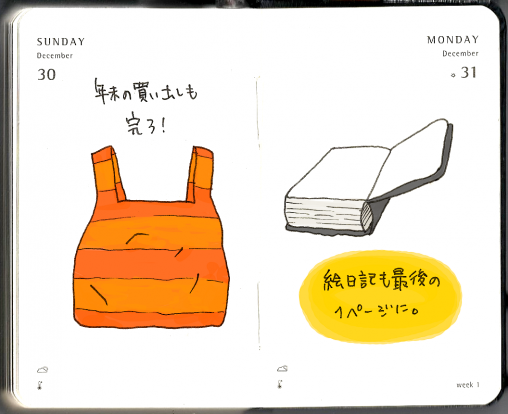 SUNDAY
December
30
年末の買い出しも
完了!
MONDAY
December
31
絵日記も最後の
1ページに。
week 1